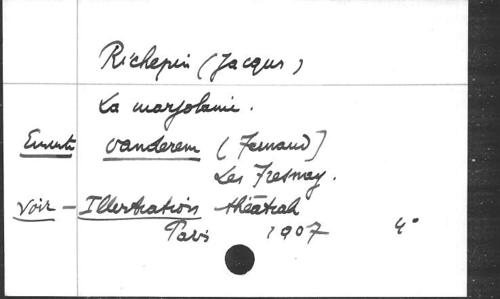 Richepin (Jacques)
La marjolaine.
Ensuite Vanderem (Fernand)
Les Fresnay.
Voir - Illustration théâtrale
Paris 1907 4°